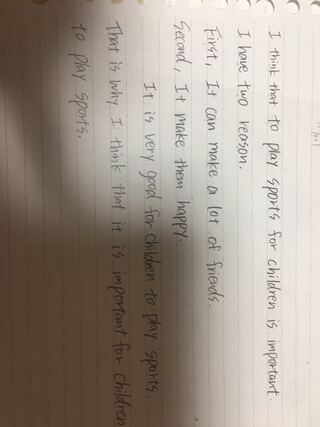 I think that to play sports for children is important.
I have two reason.
First, It can make a lot of friends.
Second, It make them happy.
It is very good for children to play sports.
That is why I think that it is important for children
to play sports.